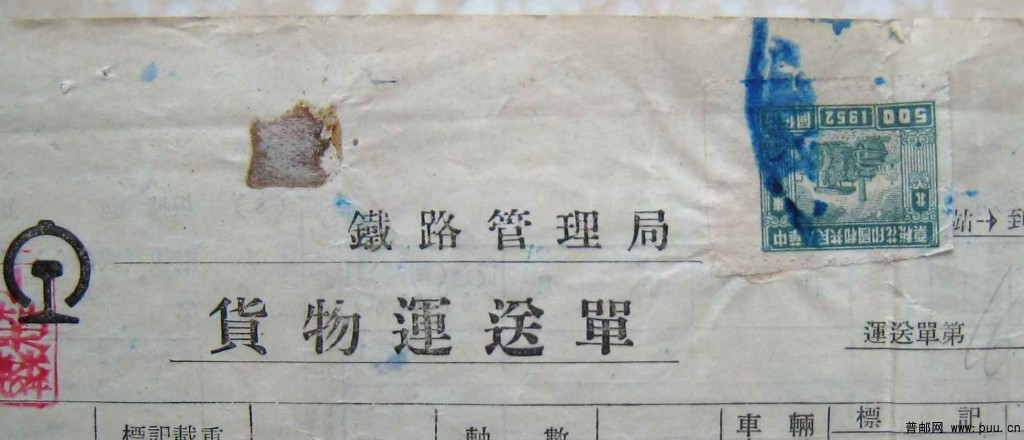 鐵路管理局
貨物運送單
運送單第
標記載重
軸數
車輛
標記
500
1952
中華人民共和國印花稅票
東北
普邮网 www.puu.cn